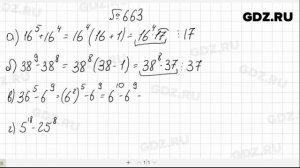 №663
GDZ.RU
а) 16⁵+16⁴ = 16⁴(16+1) = 16⁴·17 ⋮ 17
б) 38⁹-38⁸ = 38⁸(38-1) = 38⁸·37 ⋮ 37
в) 36⁵-6⁹ = (6²)⁵-6⁹ = 6¹⁰-6⁹ =
г) 5¹⁸-25⁸
GDZ.RU